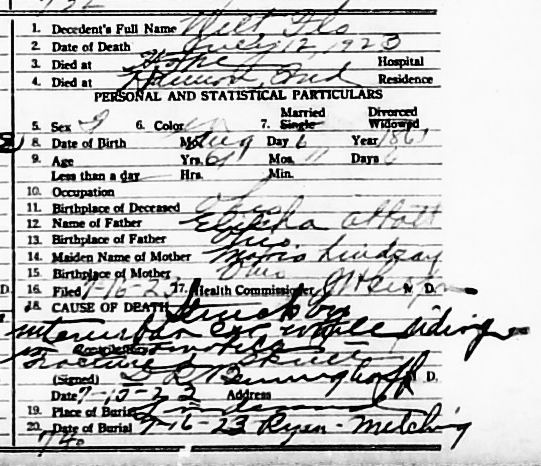 1. Decedent's Full Name Wilt Flo
2. Date of Death July 12, 1923
3. Died at Home Hospital
4. Died at Ind Residence
PERSONAL AND STATISTICAL PARTICULARS
5. Sex F 6. Color W 7. Married Single Divorced Widowed
8. Date of Birth Mo. Aug Day 6 Year 1861
9. Age Yrs. 61 Mos. 11 Days 6
Less than a day Hrs. Min.
10. Occupation
11. Birthplace of Deceased Ohio
12. Name of Father Elijha Abbott
13. Birthplace of Father Ohio
14. Maiden Name of Mother Maria Lindsay
15. Birthplace of Mother Ohio
D. 16. Filed 7-16-23 17. Health Commissioner M. D.
18. CAUSE OF DEATH Struck by
interurban car while riding
in
Fracture of Skull
(Signed) Benninghoff M. D.
Date 7-15-23 Address
19. Place of Burial Lindenwood
20. Date of Burial 7-16-23 Ryan-Metching
740